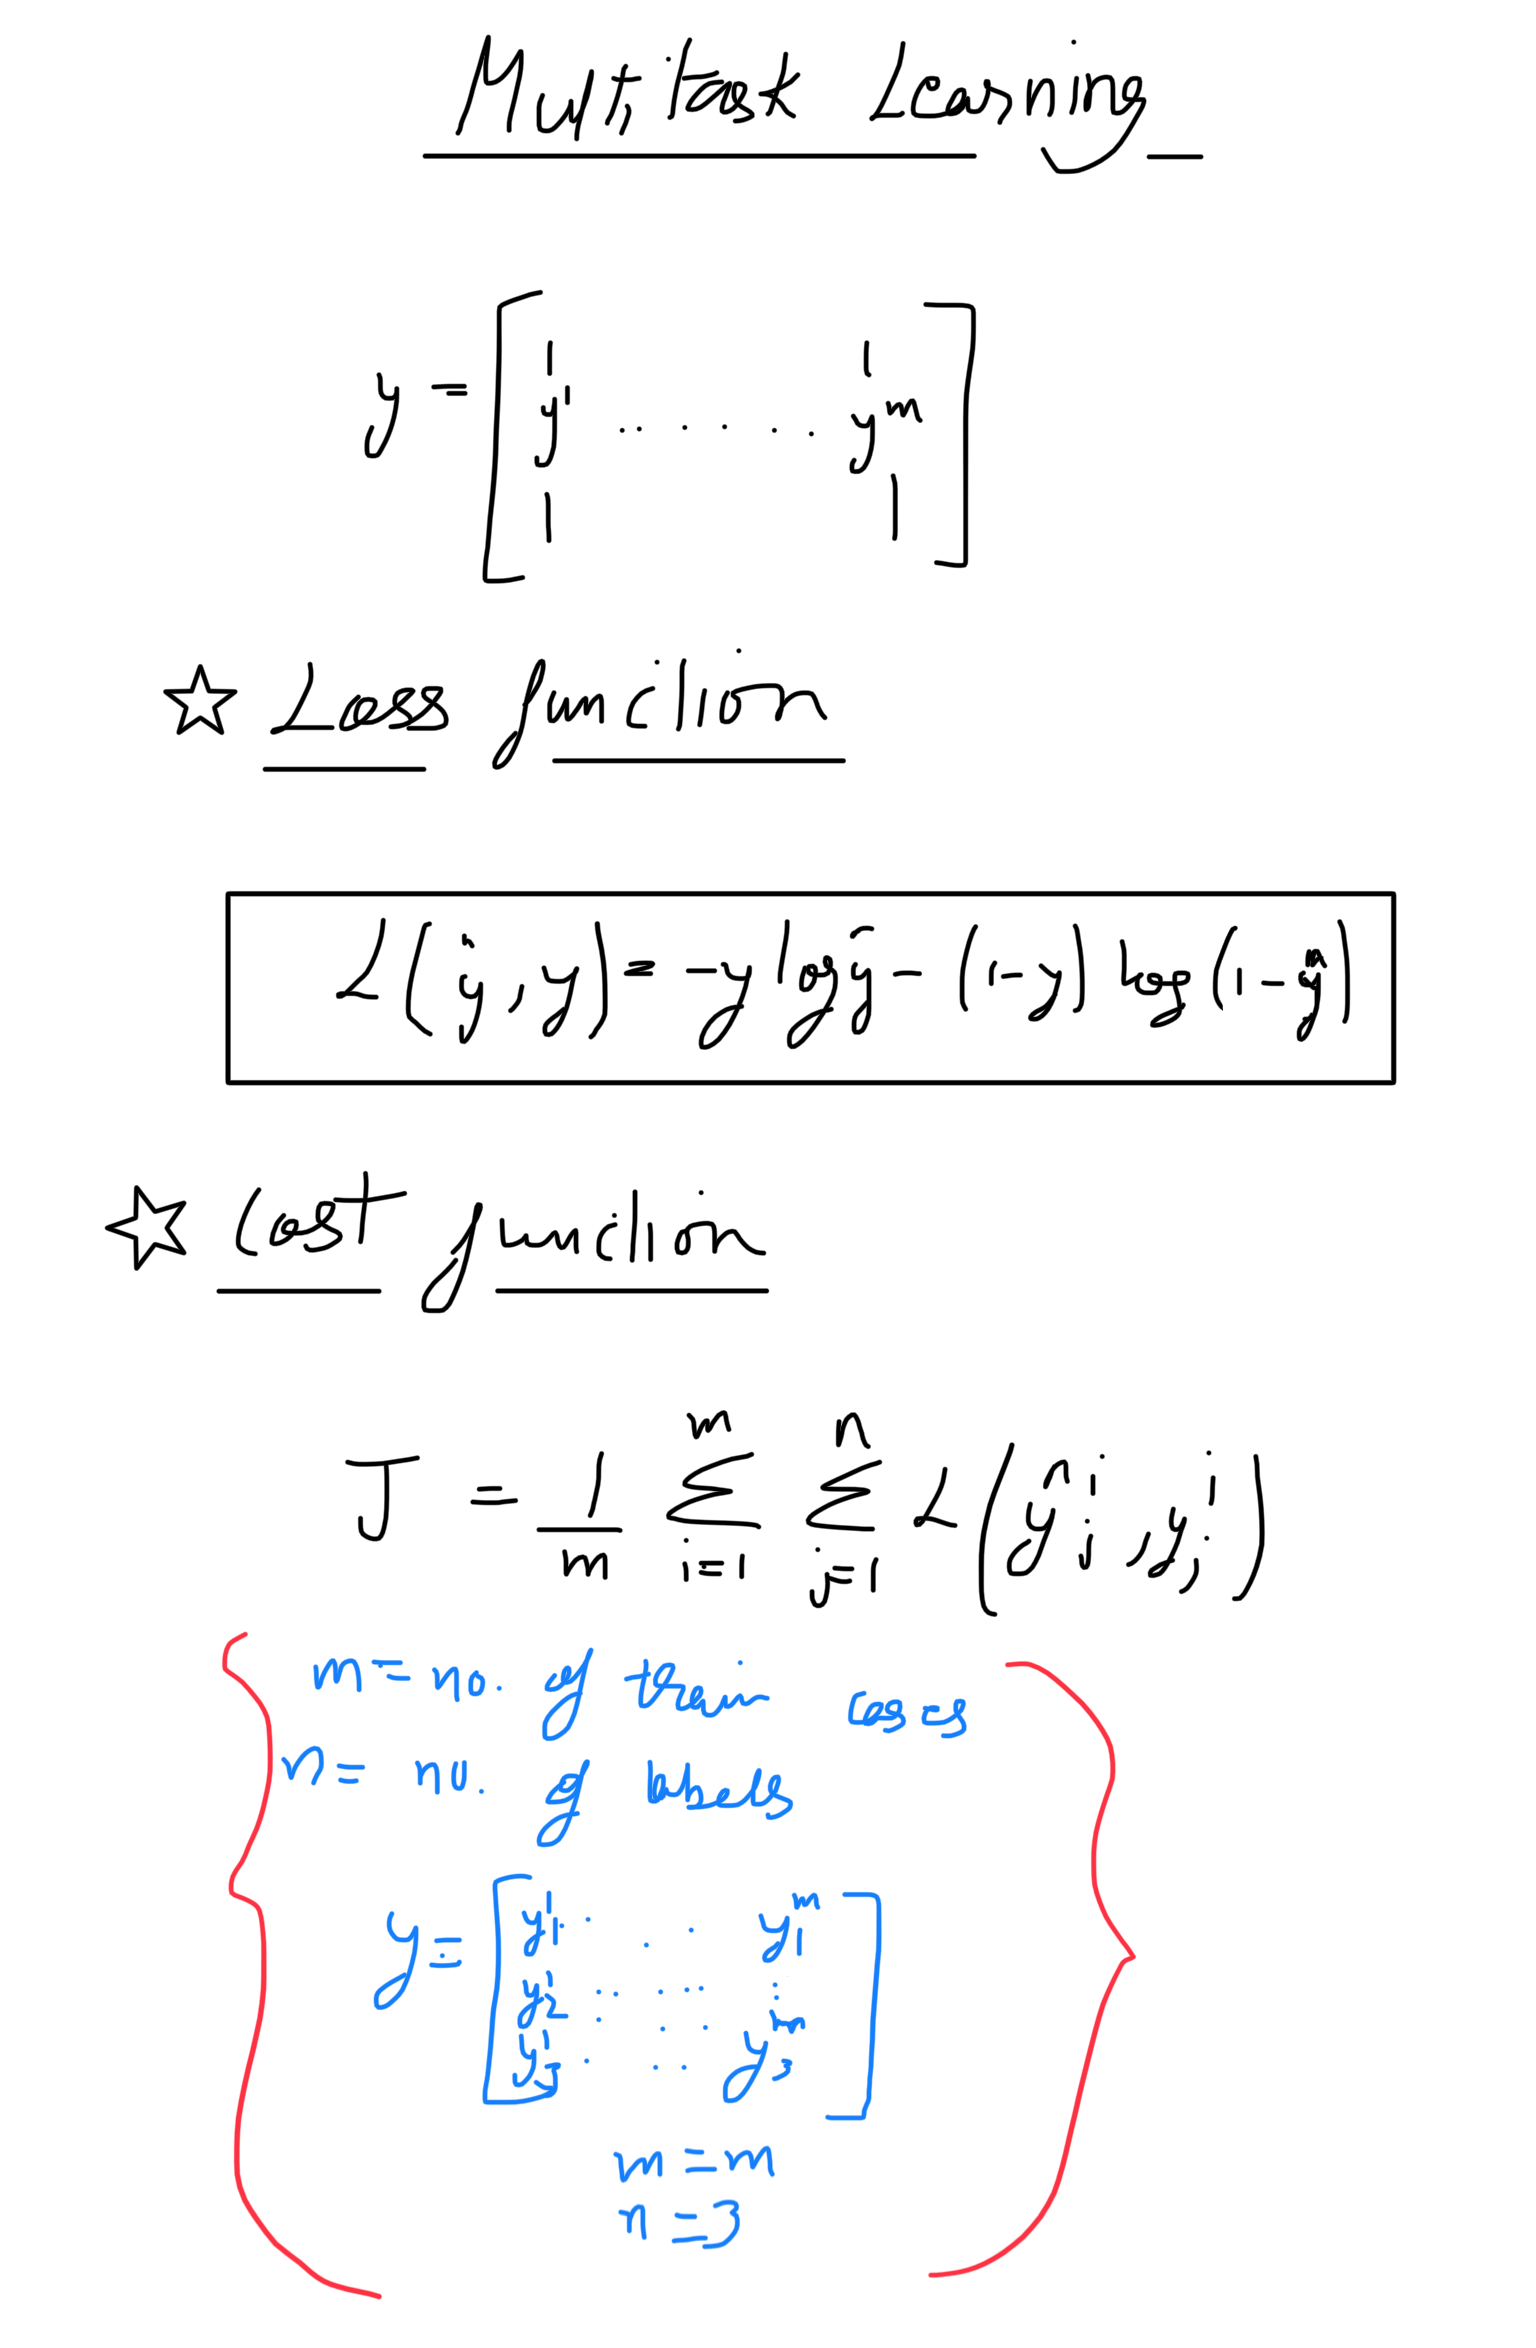 Multitask Learning
y = [ y¹ . . . . . . yᵐ ]
☆ Loss function
L(ŷ, y) = -y log ŷ - (1-y) log(1-ŷ)
☆ Cost function
J = 1/m Σᵢ₌₁ᵐ Σⱼ₌₁ⁿ L(ŷⁱⱼ, yⁱⱼ)
m = no. of train cases
n = no. of labels
y = [ y¹₁ . . . . yᵐ₁
y¹₂ . . . . . :
y¹₃ . . . yᵐ₃ ]
m = m
n = 3